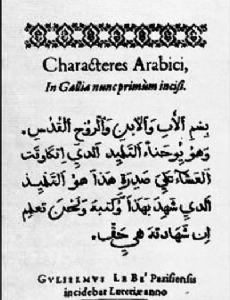 Characteres Arabici,
In Gallia nunc primùm incisi.
بسم الأب والابن والروح القدس.
وهو يوحنا التلميذ الذي اتكاوقت
العشاء علي صدرة هذا هو التلميذ
الذي شهد بهذا وكتبة ونحن تعلم
ان شهادته هي حق.
GVLIELMVS LE BE' Parisiensis
incidebat Lutetiæ anno